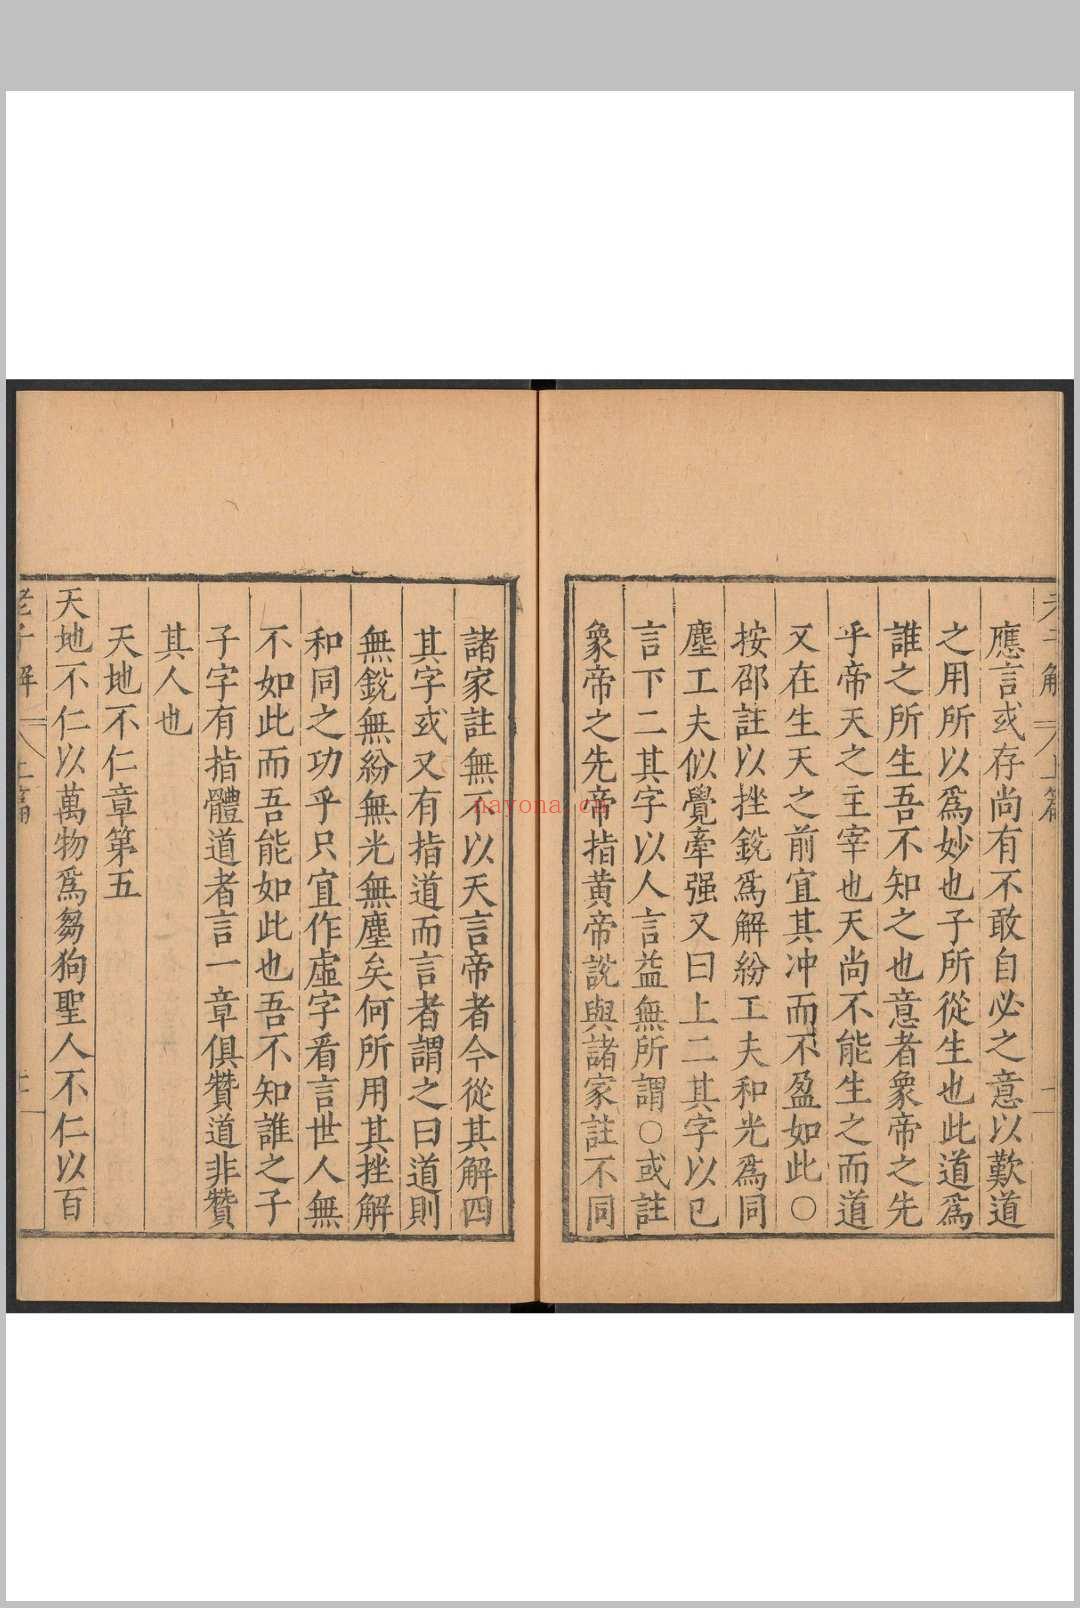 老子解 上篇
應言或存尚有不敢自必之意以歎道
之用所以爲妙也子所從生也此道爲
誰之所生吾不知之也意者象帝之先
乎帝天之主宰也天尚不能生之而道
又在生天之前宜其冲而不盈如此〇
按邵註以挫銳爲解紛工夫和光爲同
塵工夫似覺牽强又曰上二其字以已
言下二其字以人言益無所謂〇或註
象帝之先帝指黄帝說與諸家註不同
諸家註無不以天言帝者今從其解四
其字或又有指道而言者謂之曰道則
無銳無紛無光無塵矣何所用其挫解
和同之功乎只宜作虛字看言世人無
不如此而吾能如此也吾不知誰之子
子字有指體道者言一章俱贊道非贊
其人也
天地不仁章第五
天地不仁以萬物爲芻狗聖人不仁以百
老子解 上篇
nayona.cn